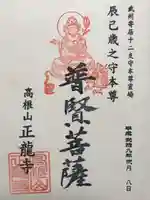 武州寄居十二支守本尊霊場
辰巳歳之守本尊
普賢菩薩
高根山 正龍寺
八日